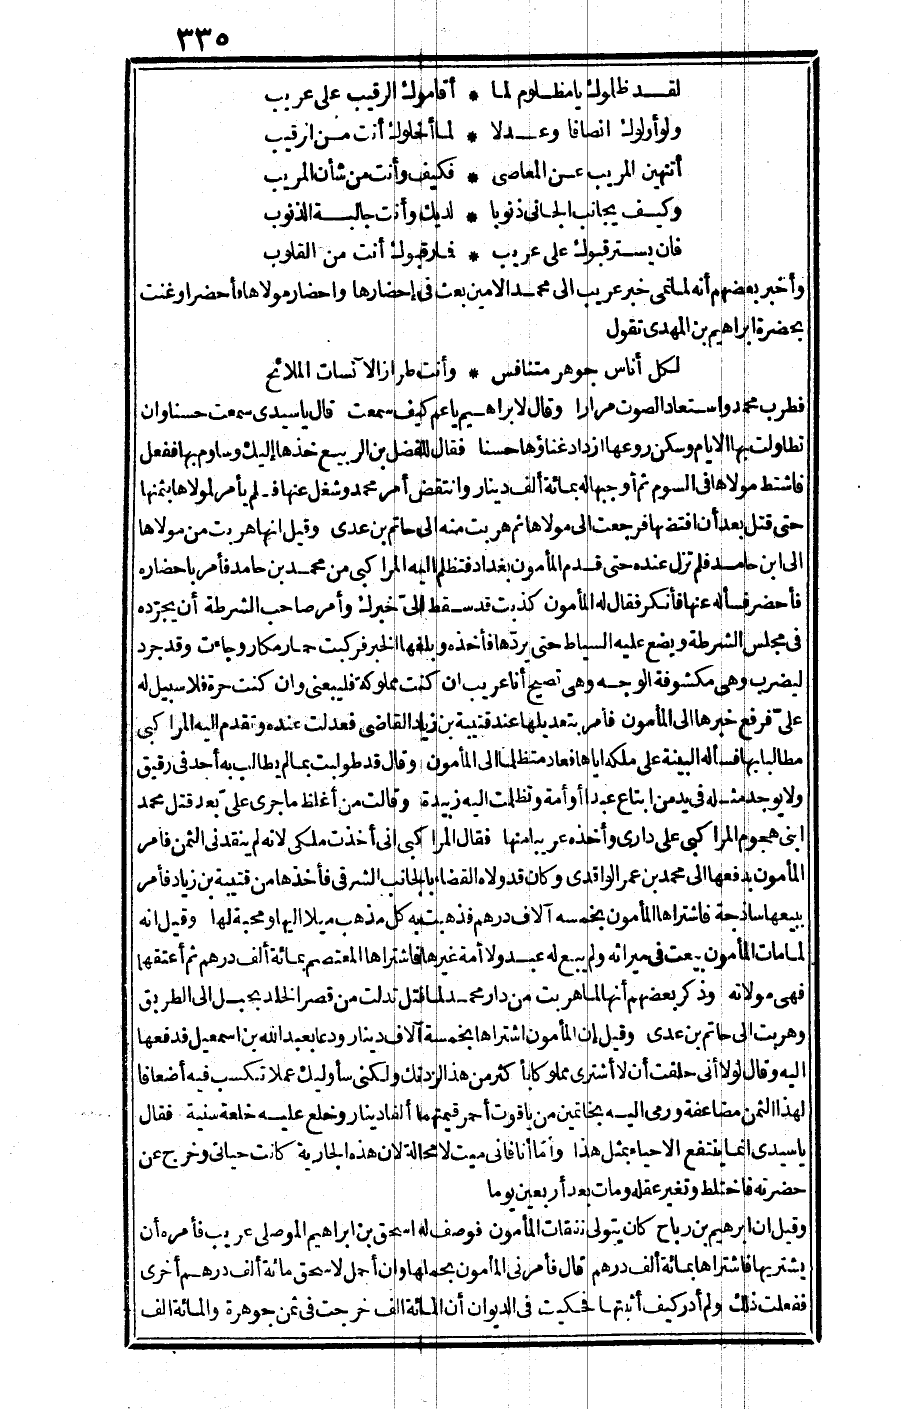 ٣٣٥
لقد ظلموك يا مظلوم لما * أقاموك الرقيب على عريب
ولو أولوك انصافا وعدلا * لما أخلوك أنت من الرقيب
أتنهين المريب عن المعاصي * فكيف وأنت من شأن المريب
وكيف يجانب الجاني ذنوبا * لديك وأنت جالبة الذنوب
فان يسترقبوك على عريب * فما رقبوك أنت من القلوب
وأخبر بعضهم أنه لما نمى خبر عريب الى محمد الامين بعث في إحضارها واحضار مولاها فأحضرا وغنت
بحضرة ابراهيم بن المهدى تقول
لكل أناس جوهر متنافس * وأنت طراز الآنسات الملائح
فطرب محمد واستعاد الصوت مرارا وقال لابراهيم يا عم كيف سمعت قال يا سيدى سمعت حسنا وان
تطاولت بها الايام وسكن روعها ازداد غناؤها حسنا فقال للفضل بن الربيع خذها إليك وساوم بها ففعل
فاشتط مولاها في السوم ثم أوجبها له بمائة ألف دينار وانتقض أمر محمد وشغل عنها فلم يأمر لمولاها بثمنها
حتى قتل بعد أن افتضها فرجعت الى مولاها ثم هربت منه الى حاتم بن عدى وقيل انها هربت من مولاها
الى ابن حامد فلم تزل عنده حتى قدم المأمون بغداد فتظلم اليه المراكبى من محمد بن حامد فأمر باحضاره
فأحضر فسأله عنها فأنكر فقال له المأمون كذبت قد سقط الىّ خبرك وأمر صاحب الشرطة أن يجرّده
في مجلس الشرطة ويضع عليه السياط حتى يردّها فأخذه وبلغها الخبر فركبت حمار مكار وجاءت وقد جرد
ليضرب وهى مكشوفة الوجه وهى تصيح أنا عريب ان كنت مملوكة فليبعنى وان كنت حرة فلا سبيل له
علىّ فرفع خبرها الى المأمون فأمر بتعديلها عند قتيبة بن زياد القاضى فعدلت عنده وتقدم اليه المراكبى
مطالبا بها فسأله البينة على ملكه اياها فعاد متظلما الى المأمون وقال قد طولبت بما لم يطالب به أحد في رقيق
ولا يوجد مثله في يد من ابتاع عبدا أو أمة وتظلمت اليه زبيدة وقالت من أغلظ ما جرى علىّ بعد قتل محمد
ابنى هجوم المراكبى على دارى وأخذه عريبا منها فقال المراكبى انى أخذت ملكى لانه لم ينقدنى الثمن فأمر
المأمون بدفعها الى محمد بن عمر الواقدى وكان قد ولاه القضاء بالجانب الشرقى فأخذها من قتيبة بن زياد فأمر
ببيعها ساذجة فاشتراها المأمون بخمسه آلاف درهم فذهبت به كل مذهب ميلا اليها ومحبة لها وقيل انه
لما مات المأمون بيعت في ميراثه ولم يبع له عبد ولا أمة غيرها فاشتراها المعتصم بمائة ألف درهم ثم أعتقها
فهى مولاته وذكر بعضهم أنها لما هربت من دار محمد لما قتل تدلت من قصر الخلد بحبل الى الطريق
وهربت الى حاتم بن عدى وقيل إن المأمون اشتراها بخمسة آلاف دينار ودعا بعبد الله بن اسمعيل فدفعها
اليه وقال لولا أنى حلفت أن لا أشترى مملوكا بأكثر من هذا لزدتك ولكنى سأوليك عملا تكسب فيه أضعافا
لهذا الثمن مضاعفة ورمى اليه بخاتمين من ياقوت أحمر قيمتهما ألفا دينار وخلع عليه خلعة سنية فقال
يا سيدى انما ينتفع الاحياء بمثل هذا وأما أنا فانى ميت لا محالة لان هذه الجارية كانت حياتى وخرج عن
حضرته فاختلط وتغير عقله ومات بعد أربعين يوما
وقيل ان ابرهيم بن رباح كان يتولى نفقات المأمون فوصف له اسحق بن ابراهيم الموصلى عريب فأمره أن
يشتريها فاشتراها بمائة ألف درهم قال فأمرنى المأمون بحملها وان أحمل لاسحق مائة ألف درهم أخرى
ففعلت ذلك ولم أدر كيف أثبتها فحكيت في الديوان أن المائة الف خرجت في ثمن جوهرة والمائة الف